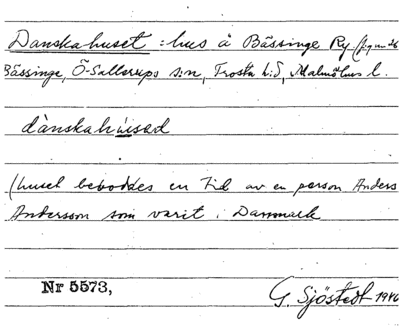 Danskahuset : hus å Bässinge Ry.
Bässinge, Ö. Sallerups s:n, Frosta h:d, Malmöhus l.
dànskahúised
(huset beboddes en tid av en person Anders
Andersson som varit i Danmark
Nr 5573,
G. Sjöstedt 1946